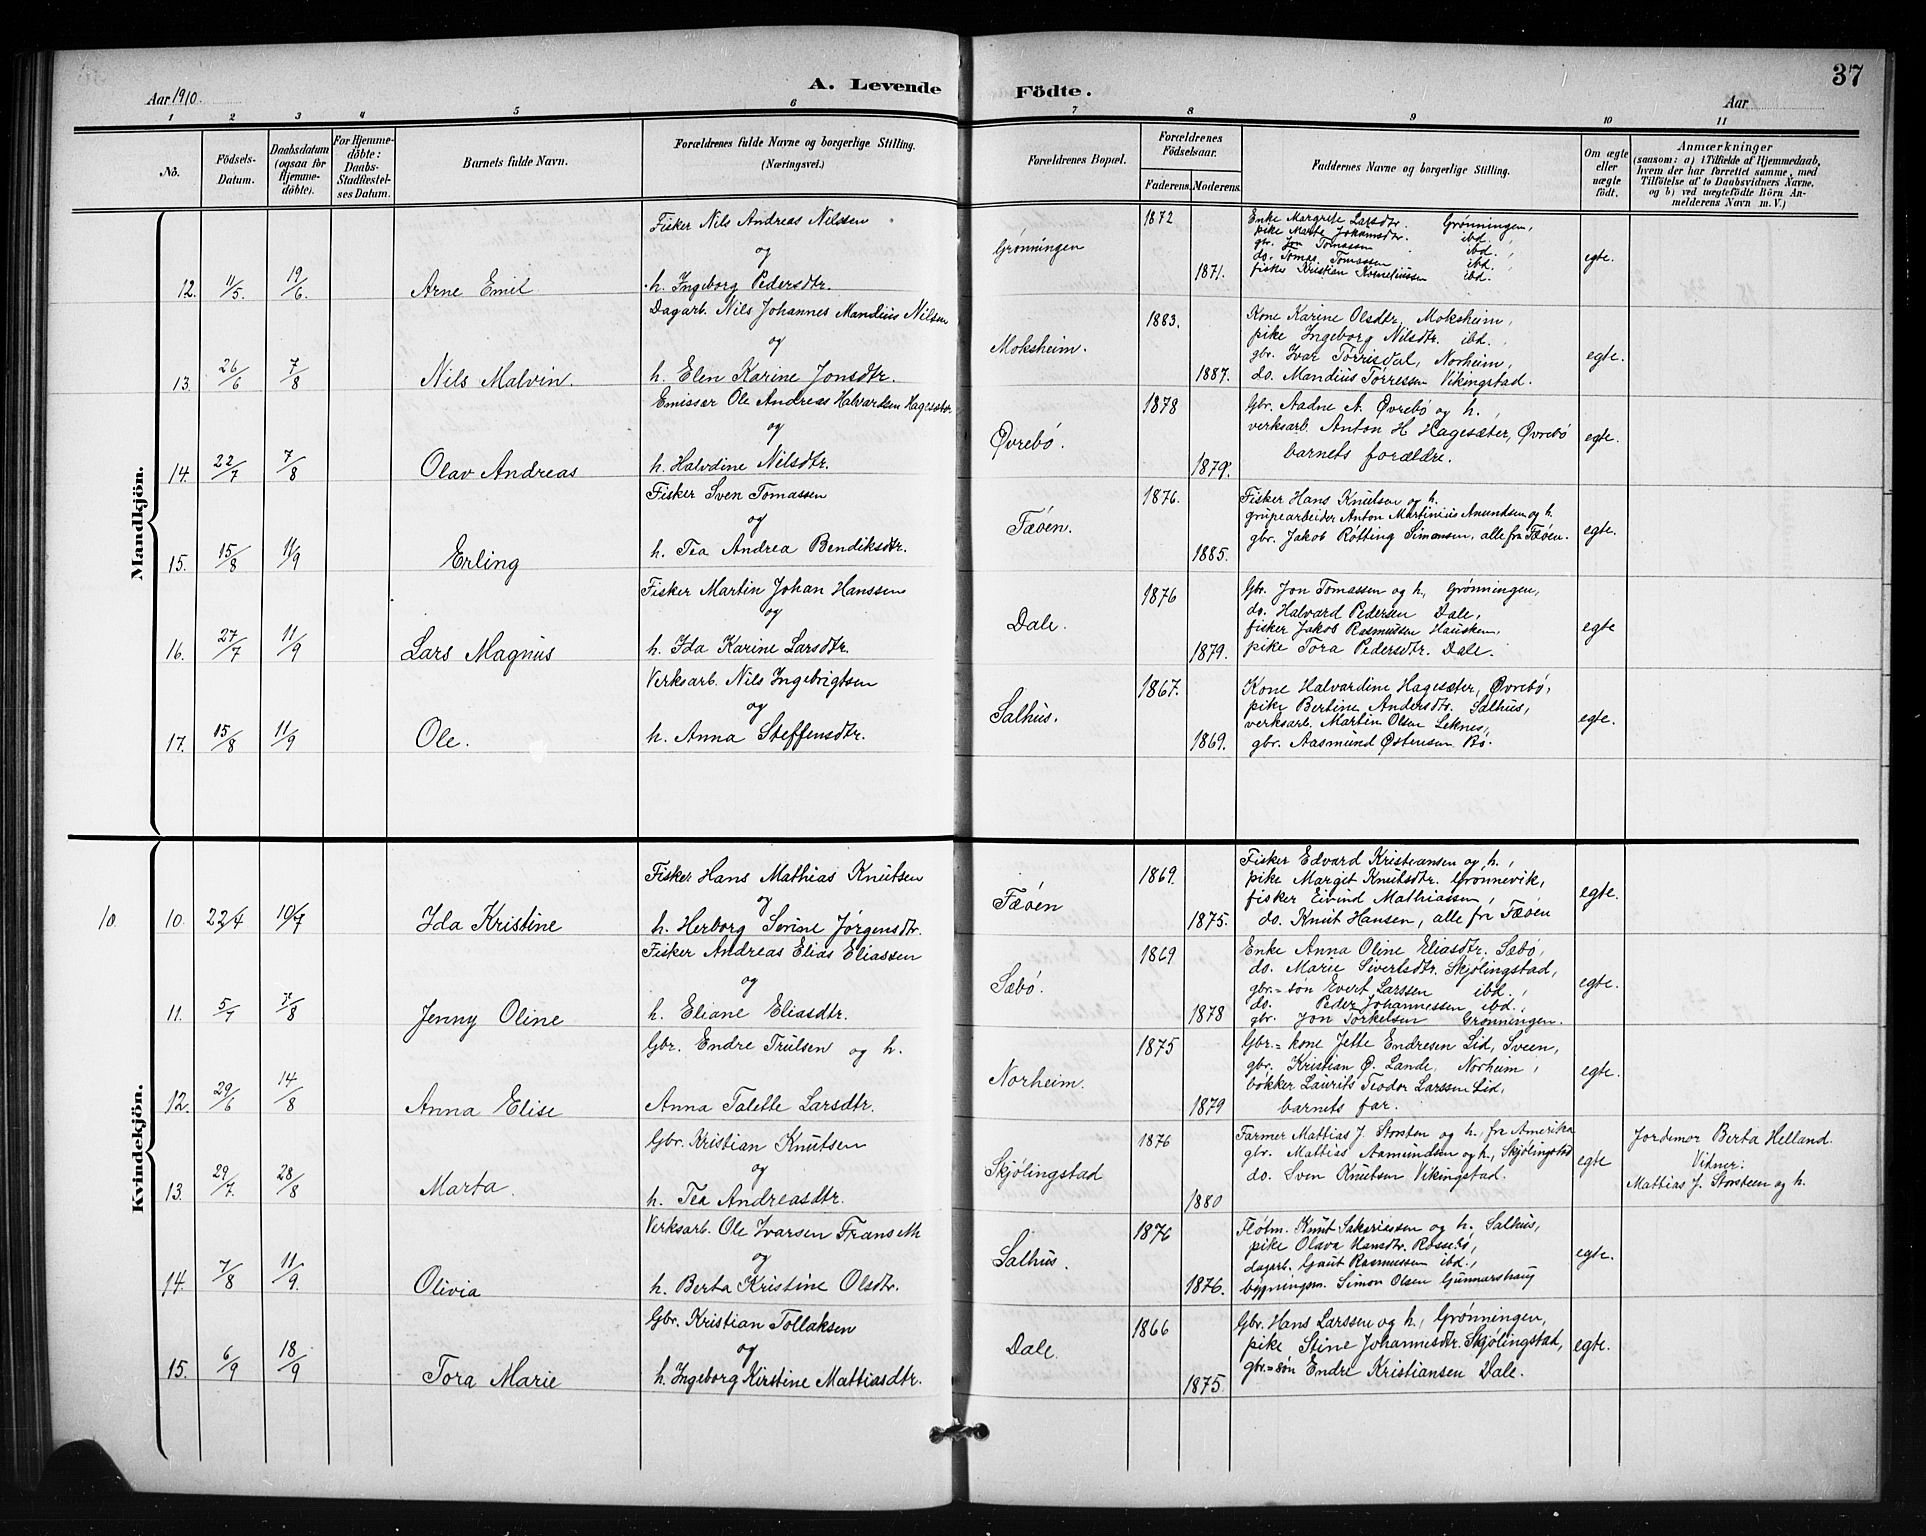 37
Aar 1910.
A. Levende Födte.
Aar
1 2 3 4 5 6 7 8 9 10 11
No.
Födsels-Datum.
Daabsdatum (ogsaa for Hjemme-döbte).
For Hjemme-döbte: Daabs-Stadfæstel-ses Datum.
Barnets fulde Navn.
Forældrenes fulde Navne og borgerlige Stilling. (Næringsvei.)
Forældrenes Bopæl.
Forældrenes Födselsaar.
Faderens.
Moderens.
Faddernes Navne og borgerlige Stilling.
Om ægte eller uægte födt.
Anmærkninger
(saasom: a) i Tilfælde af Hjemmedaab,
hvem der har forrettet samme, med
Tilföielse af to Daabsvidners Navne.
og b) ved uegtefödte Börn An-
melderens Navn m. V.)
Mandkjön.
12. 11/5 19/6 Arne Emil
Fisker Nils Andreas Nilsen
og
h. Ingeborg Pedersdtr.
Grønningen
1872
1871.
Enke Margrete Larsdtr. Grønningen,
pike Marte Johansdtr. ibd.,
gbr. Jon Tomassen ibd.,
do. Tomas Tomassen ibd.,
fisker Kristian Korneliussen ibd.
egte.
13. 26/6 7/8 Nils Malvin.
Dagarb. Nils Johannes Mandius Nilsen
og
h. Elen Karine Jonsdtr.
Moksheim.
1883.
1887.
Kone Karine Olsdtr, Moksheim,
pike Ingeborg Nilsdtr. ibd.
gbr. Ivar Torrisdal, Norheim,
do. Mandius Tørressen Vikingstad.
egte.
14. 22/7 7/8 Olav Andreas
Emissær Ole Andreas Halvardsen Hagesæter
og
h. Halvdine Nilsdtr.
Øvrebö.
1878
1879.
Gbr. Aadne A. Øvrebö og h.,
verksarb. Anton H Hagesæter, Øvrebö
barnets forældre.
egte.
15. 15/8 11/9 Erling
Fisker Sven Tomassen
og
h. Tea Andrea Bendiksdtr.
Fæøen.
1876.
1885.
Fisker Hans Knutsen og h.
grupearbeider Anton Martinius Amundsen og h,
gbr. Jakob Røtting Simonsen, alle fra Fæøen.
egte.
16. 27/7 11/9 Lars Magnus
Fisker Martin Johan Hanssen
og
h. Ida Karine Larsdtr.
Dale.
1876
1879.
Gbr. Jon Tomassen og h, Grønningen,
do. Halvard Pedersen Dale,
fisker Jakob Rasmussen Hausken,
pike Tora Pedersdtr. Dale.
egte
17. 15/8 11/9 Ole.
Verksarb. Nils Ingebrigtsen
og
h. Anna Steffensdtr.
Salhus.
1867.
1869.
Kone Halvardine Hagesæter, Øvrebö,
pike Bertine Andersdtr. Salhus,
verksarb. Martin Olsen Leknes,
gbr. Aasmund Østensen Bö.
egte.
Kvindekjön.
10. 10. 22/4 10/7 Ida Kristine
Fisker Hans Mathias Knutsen
og
h. Herborg Serine Jørgensdtr.
Fæøen
1869.
1875.
Fisker Edvard Kristiansen og h,
pike Margit Knutsdtr. Grønnevik,
fisker Eivind Mathiassen,
do. Knut Hansen, alle fra Fæøen
egte.
11. 5/7 7/8 Jenny Oline
Fisker Andreas Elias Eliassen
og
h. Eliane Eliasdtr.
Sæbö.
1869
1878
Enke Anna Oline Eliasdtr. Sæbö,
do. Marie Sivertsdtr. Skjølingstad,
gbr.=søn Evert Larssen ibd.,
do. Peder Johannessen ibd.,
gbr. Jon Torkelsen Grønningen.
egte.
12. 29/6 14/8 Anna Elise
Gbr. Endre Trulsen og h.
Anna Talette Larsdtr.
Norheim.
1875
1879
Gbr.=kone Jette Endresen Lid, Sveen,
gbr. Kristian Ø. Lande, Norheim,
bøkker Laurits Teodor Larssen Lid,
barnets far.
egte.
13. 29/7 28/8 Marta.
Gbr. Kristian Knutsen
og
h. Tea Andreasdtr.
Skjølingstad
1876
1880
Farmer Mattias J. Storsten og h, fra Amerika
gbr. Mattias Aamundsen og h, Skjølingstad
do. Sven Knutsen Vikingstad.
egte
Jordemor Berta Helland.
Vidner:
Mattias J. Storsteen og h.
14. 7/8 11/9 Olivia
Verksarb. Ole Ivarsen
og
h. Berta Kristine Olsdtr.
Salhus.
1876
1876.
Fløtm. Knut Sakariassen og h. Salhus,
pike Olava Hansdtr. Røssebö,
dagarb. Gaut Rasmussen ibd.,
bygningsm. Simon Olsen Gunnarshaug
egte.
15. 6/9 18/9 Tora Marie
Gbr. Kristian Tollaksen
og
h. Ingeborg Kirstine Mattiasdtr.
Dale.
1866
1875
Gbr. Hans Larssen og h, Grønningen,
pike Stine Johannesdtr. Skjølingstad,
gbr.=søn Endre Kristiansen Dale.
egte.